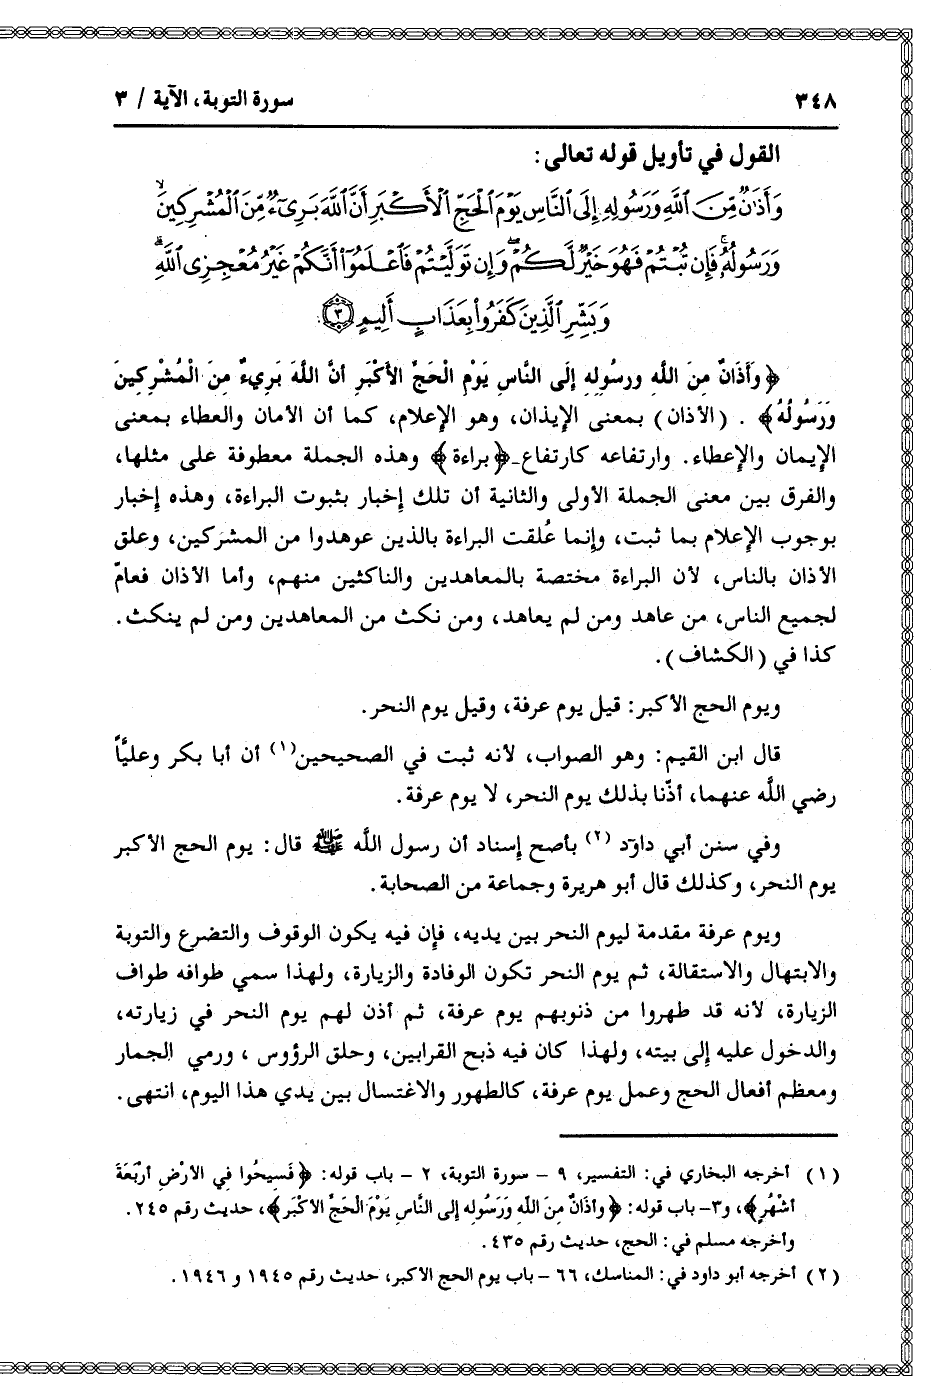 ٣٤٨ سورة التوبة، الآية / ٣
القول في تأويل قوله تعالى:
وَأَذَٰنٌ مِّنَ ٱللَّهِ وَرَسُولِهِۦٓ إِلَى ٱلنَّاسِ يَوْمَ ٱلْحَجِّ ٱلْأَكْبَرِ أَنَّ ٱللَّهَ بَرِىٓءٌ مِّنَ ٱلْمُشْرِكِينَ ۙ
وَرَسُولُهُۥ ۚ فَإِن تُبْتُمْ فَهُوَ خَيْرٌ لَّكُمْ ۖ وَإِن تَوَلَّيْتُمْ فَٱعْلَمُوٓا۟ أَنَّكُمْ غَيْرُ مُعْجِزِى ٱللَّهِ ۗ
وَبَشِّرِ ٱلَّذِينَ كَفَرُوا۟ بِعَذَابٍ أَلِيمٍ ٣
﴿وَأَذَانٌ مِنَ اللَّهِ ورسُولِهِ إلَى النَّاسِ يَوْمِ الْحَجِّ الأَكْبَرِ أنَّ اللَّهَ بَرِيءٌ مِنَ الْمُشْرِكِينَ
وَرَسُولُهُ﴾ . (الأذان) بمعنى الإيذان، وهو الإعلام، كما أن الأمان والعطاء بمعنى
الإيمان والإعطاء. وارتفاعه كارتفاع ـ﴿براءة﴾ وهذه الجملة معطوفة على مثلها،
والفرق بين معنى الجملة الأولى والثانية أن تلك إخبار بثبوت البراءة، وهذه إخبار
بوجوب الإعلام بما ثبت، وإنما عُلقت البراءة بالذين عوهدوا من المشركين، وعلق
الأذان بالناس، لأن البراءة مختصة بالمعاهدين والناكثين منهم، وأما الأذان فعامّ
لجميع الناس، من عاهد ومن لم يعاهد، ومن نكث من المعاهدين ومن لم ينكث.
كذا في (الكشاف).
ويوم الحج الأكبر: قيل يوم عرفة، وقيل يوم النحر.
قال ابن القيم: وهو الصواب، لأنه ثبت في الصحيحين(١) أن أبا بكر وعليًّا
رضي اللَّه عنهما، أذّنا بذلك يوم النحر، لا يوم عرفة.
وفي سنن أبي داوٓد (٢) بأصح إسناد أن رسول اللَّه ﷺ قال: يوم الحج الأكبر
يوم النحر، وكذلك قال أبو هريرة وجماعة من الصحابة.
ويوم عرفة مقدمة ليوم النحر بين يديه، فإن فيه يكون الوقوف والتضرع والتوبة
والابتهال والاستقالة، ثم يوم النحر تكون الوفادة والزيارة، ولهذا سمي طوافه طواف
الزيارة، لأنه قد طهروا من ذنوبهم يوم عرفة، ثم أذن لهم يوم النحر في زيارته،
والدخول عليه إلى بيته، ولهذا كان فيه ذبح القرابين، وحلق الرؤوس ، ورمي الجمار
ومعظم أفعال الحج وعمل يوم عرفة، كالطهور والاغتسال بين يدي هذا اليوم، انتهى.
(١) أخرجه البخاري في: التفسير، ٩ - سورة التوبة، ٢ - باب قوله: ﴿فَسِيحُوا فِي الأَرْضِ أَرْبَعَةَ
أشْهُرٍ﴾، و٣- باب قوله: ﴿وأذَانٌ مِنَ اللَّهِ وَرَسُولِهِ إلى النَّاسِ يَوْمَ الْحَجِّ الأكْبَرِ﴾، حديث رقم ٢٤٥.
وأخرجه مسلم في: الحج، حديث رقم ٤٣٥.
(٢) أخرجه أبو داود في: المناسك، ٦٦ - باب يوم الحج الأكبر، حديث رقم ١٩٤٥ و ١٩٤٦.